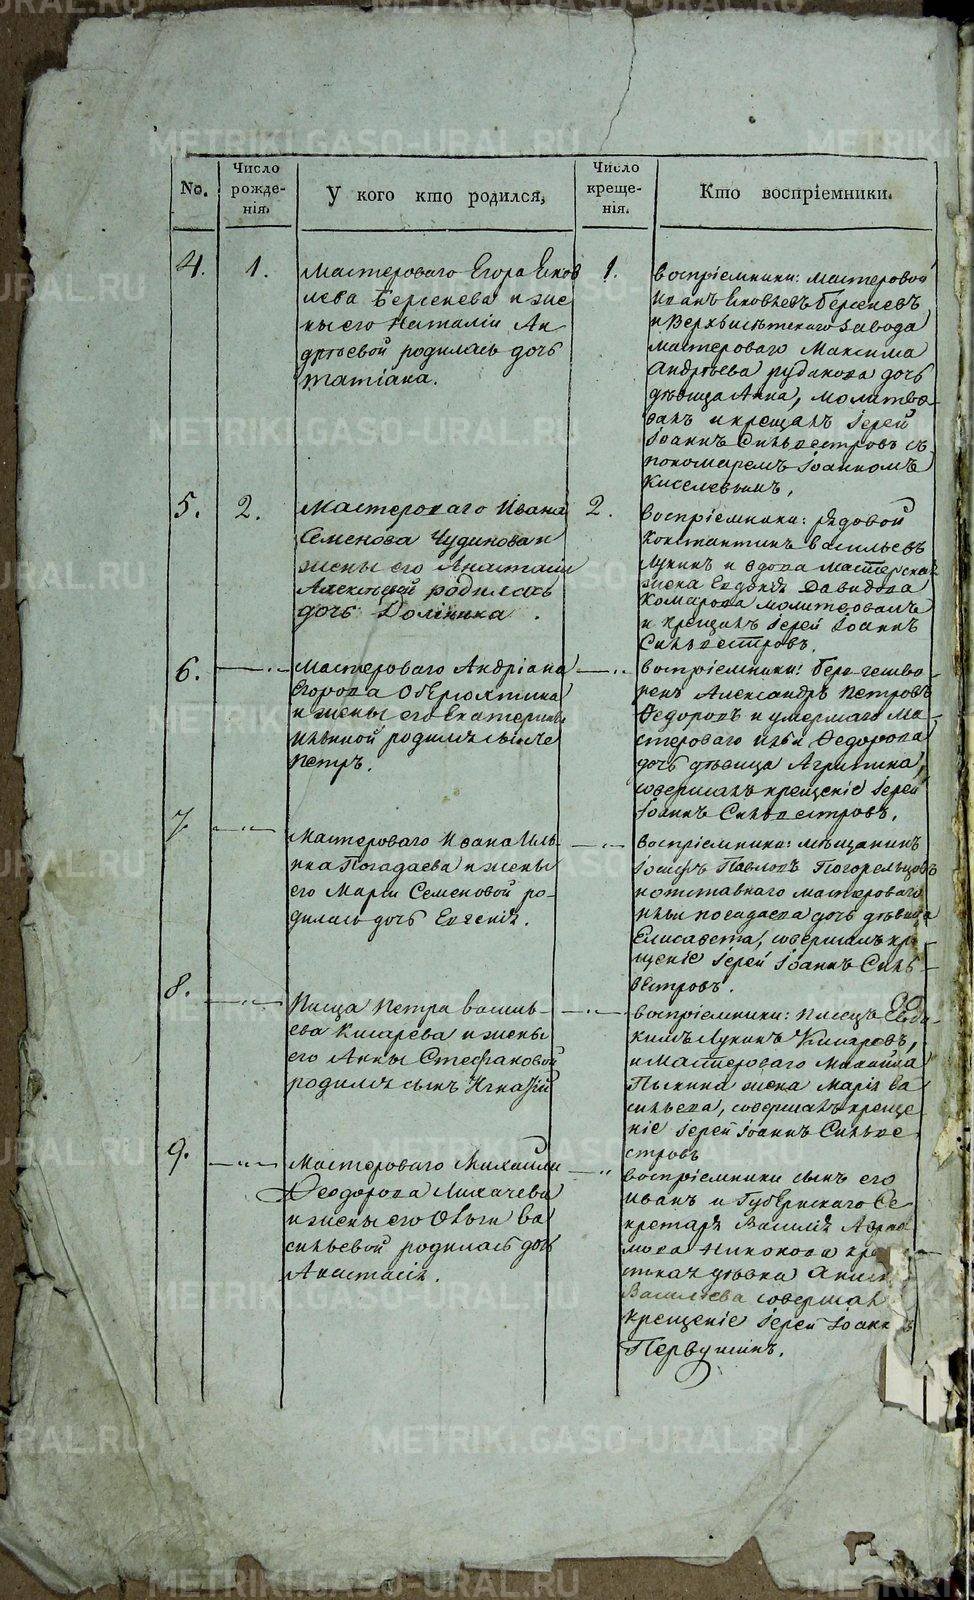 No.
Число рожде-
нія.
У кого кто родился,
Число креще-
нія.
Кто воспріемники.
4.
1.
Мастероваго Егора Яков
лева Бергенева и же
ны его Наталіи Ан
дрѣевой родилась дочь
Татіана.
1.
воспріемники: мастеровой
Иванъ Яковлевъ Бергеневъ
и Верхъисетскаго завода
мастероваго Максима
Андрѣева Рудакова дочь
дѣвица Анна, молитво-
валъ и крещалъ Іерей
Іоаннъ Сильвестровъ съ
пономаремъ Іоанномъ
Киселевымъ,
5.
2.
Мастероваго Ивана
Семенова Чудинова и
жены его Анастасіи
Алексѣевой родилась
дочь
2.
воспріемники: Рядовой
Константинъ Васильевъ
Лукинъ и вдова мастерская
жена Евдокія Давидова
Комарова молитвовалъ
и крещалъ Іерей Іоаннъ
Сильвестровъ.
6.
Мастероваго Андріана
Егорова Обрюхтина
и жены его Екатерины
Ильиной родился сынъ
Петръ.
воспріемники: берг-гешво-
ренъ Александръ Петровъ
Ѳедоровъ и умершаго Ма-
стероваго Ильи Ѳедорова
дочь дѣвица Агрипина,
совершалъ крещеніе Іерей
Іоаннъ Сильвестровъ,
7.
Мастероваго Ивана Иль-
ина Погадаева и жены
его Маріи Семеновой ро-
дилась дочь Евгенія.
воспріемники: мѣщанинъ
Іосифъ Павловъ Погорельцовъ
и отставнаго мастероваго
Ильи Погадаева дочь дѣвица
Елисавета, совершалъ кре
щеніе Іерей Іоаннъ Силь-
вестровъ.
8.
Писца Петра Василь-
ева Кисарева и жены
его Анны Стефановой
родился сынъ Игнатій
воспріемники: Писецъ Евдо-
кимъ Лукинъ Кисаревъ,
и мастероваго Михайла
Пьянина жена Марія Ва
сильева, совершалъ креще
ніе Іерей Іоаннъ Сильве
стровъ
9.
Мастероваго Михайла
Ѳеодорова Лихачева
и жены его Ольги Ва
сильевой родилась дочь
Анастасія.
воспріемники сынъ его
Иванъ и Губернскаго Се
кретаря Василія
дѣвка
Васильева совершалъ
крещеніе Іерей Іоаннъ
Первушинъ.
METRIKI.GASO-URAL.RU